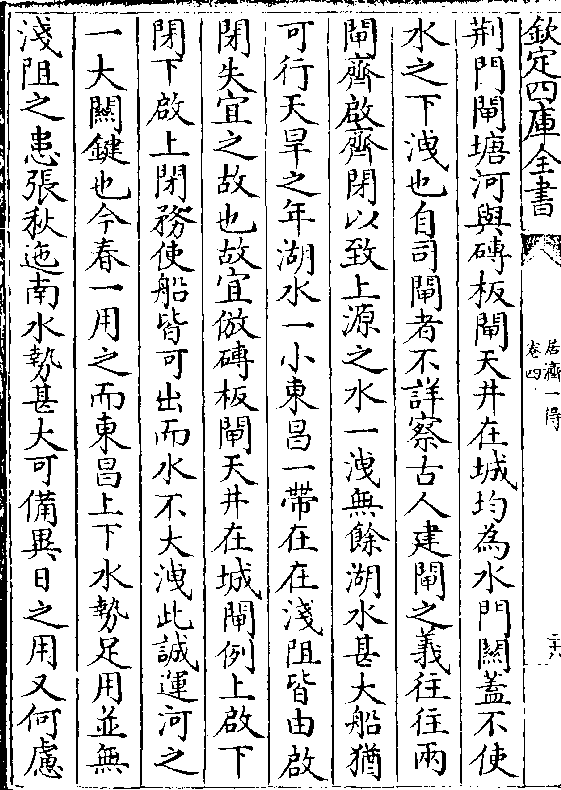 欽定四庫全書
居濟一得
卷四
二十八
荆門閘塘河與磚板閘天井在城均為水門關蓋不使
水之下洩也自司閘者不詳察古人建閘之義往往兩
閘齊啟齊閉以致上源之水一洩無餘湖水甚大船猶
可行天旱之年湖水一小東昌一帶在在淺阻皆由啟
閉失宜之故也故宜倣磚板閘天井在城閘例上啟下
閉下啟上閉務使船皆可出而水不大洩此誠運河之
一大關鍵也今春一用之而東昌上下水勢足用並無
淺阻之患張秋迤南水勢甚大可備異日之用又何慮